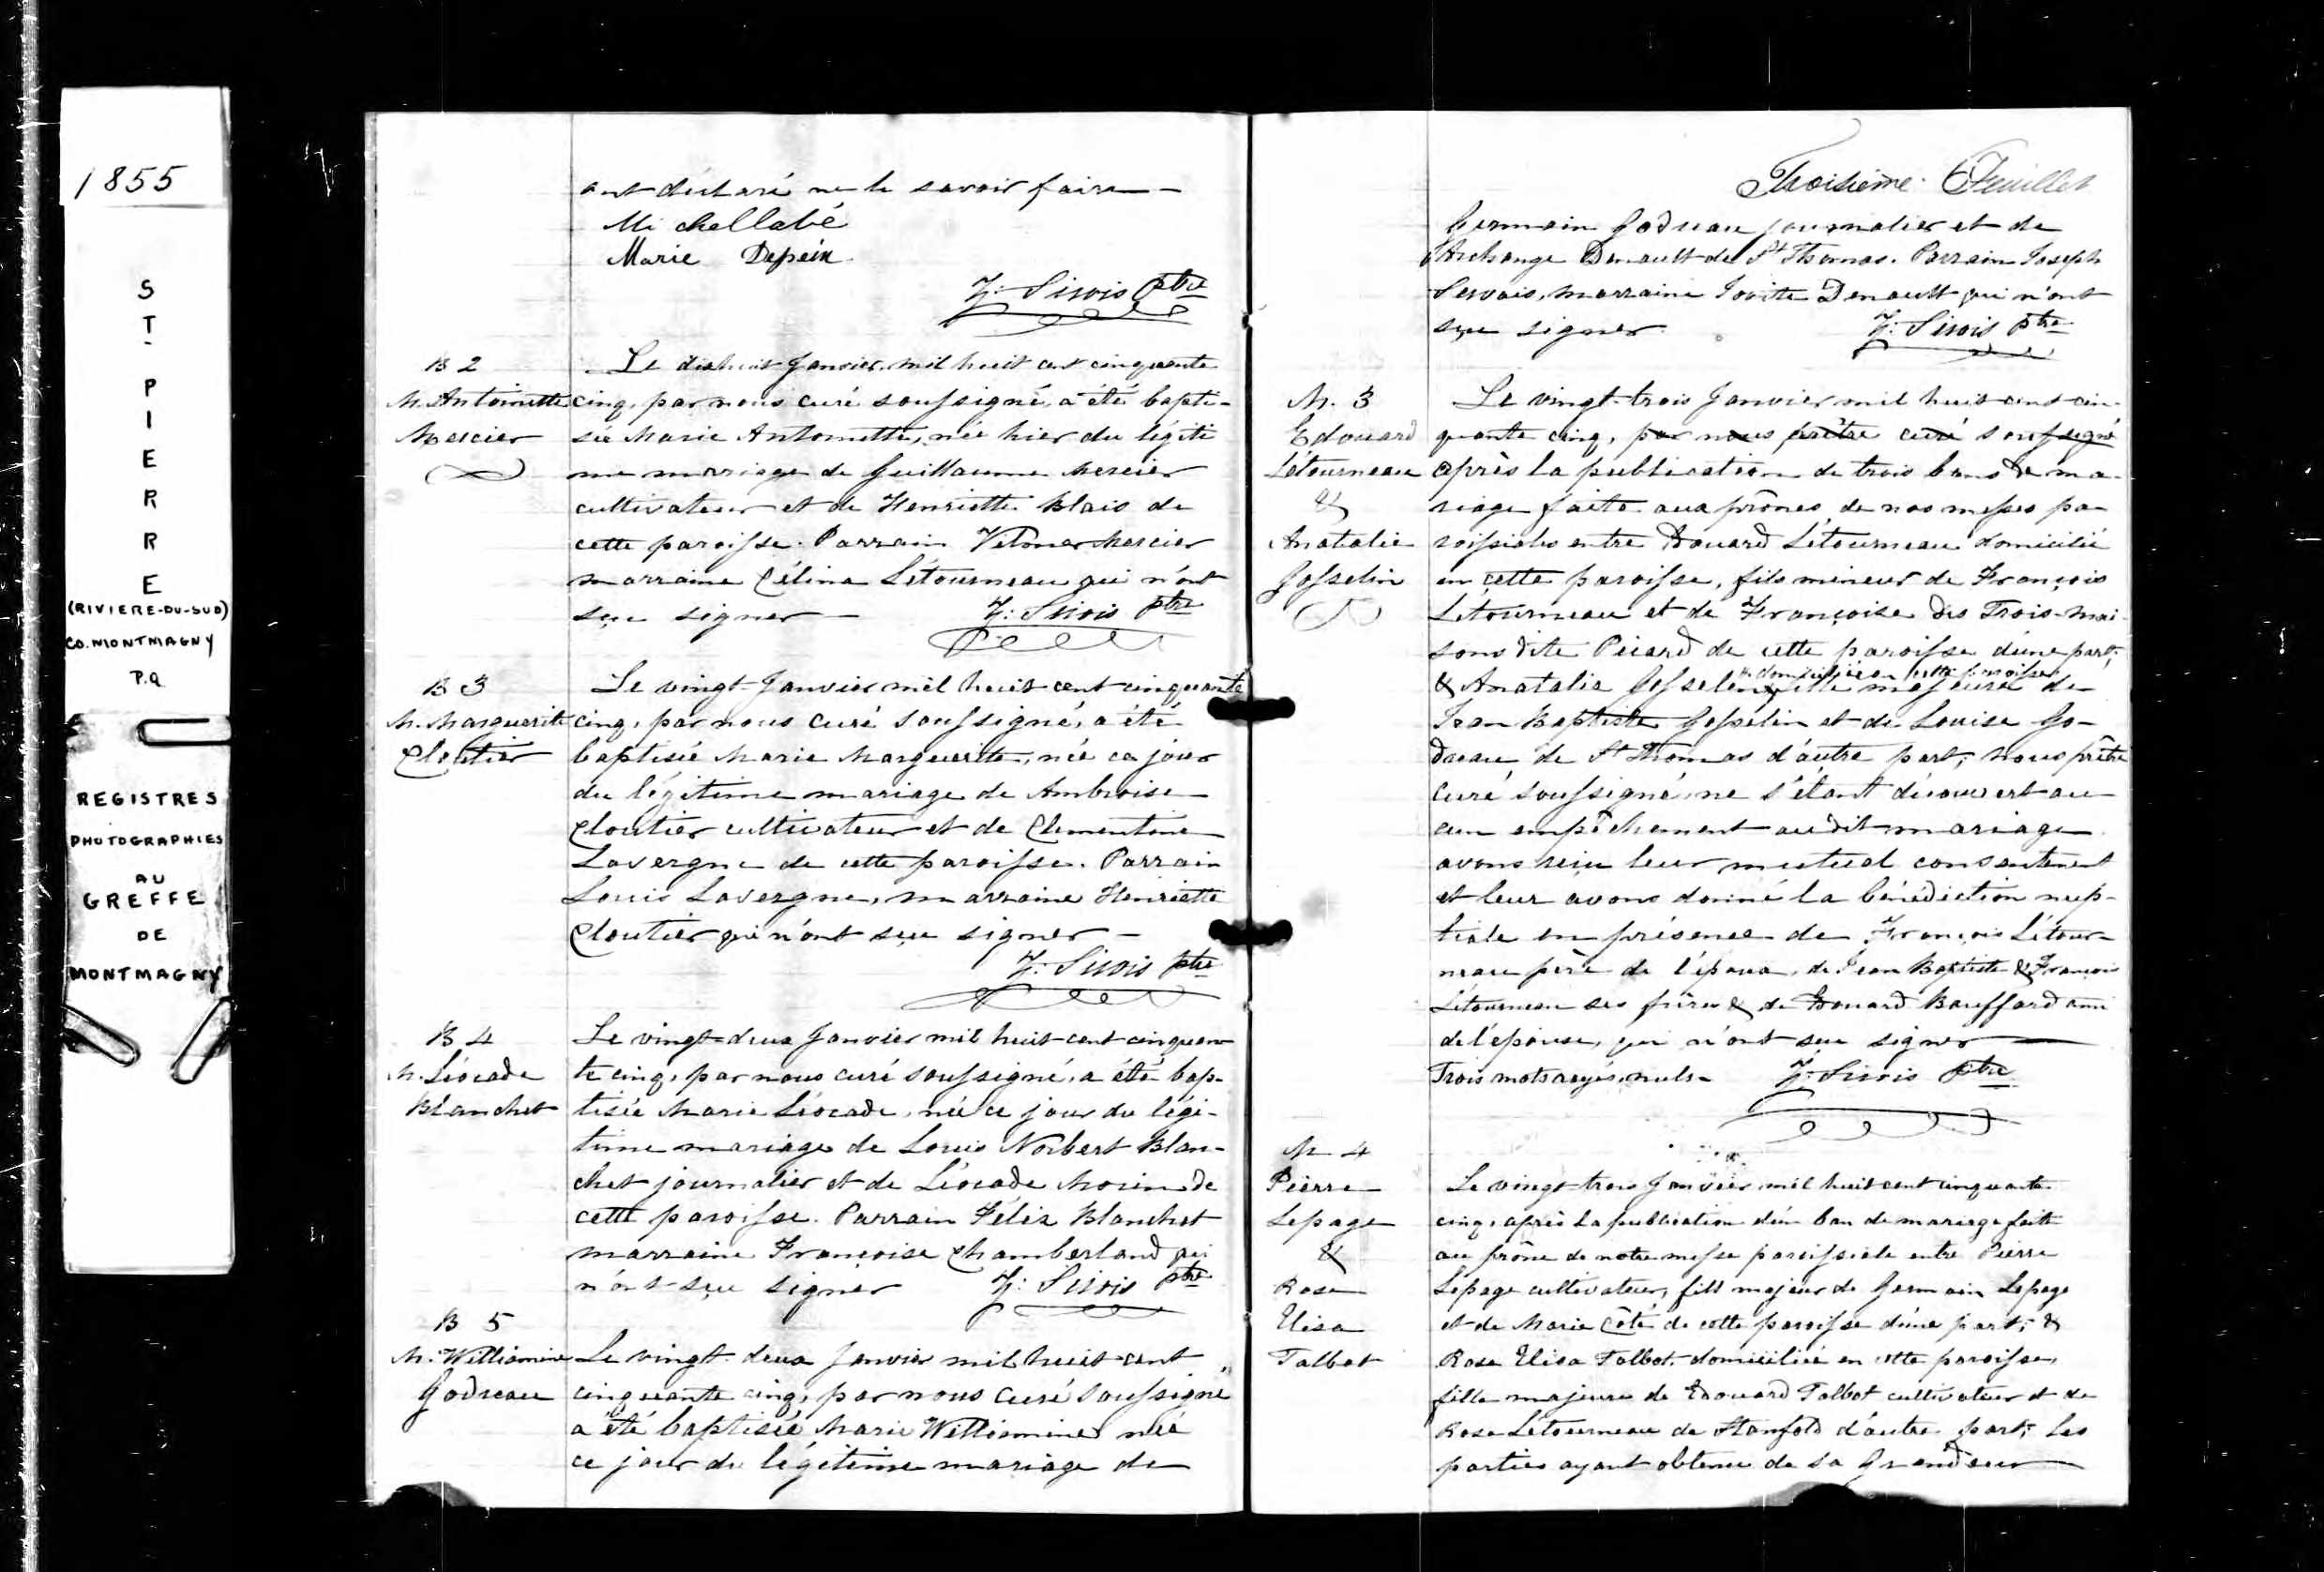 1855
ST
PIERRE
(RIVIERE-DU-SUD)
CO. MONTMAGNY
P.Q.
REGISTRES
PHOTOGRAPHIES
AU
GREFFE
DE
MONTMAGNY
ont déclaré ne le savoir faire —
Michel Labé
Marie
Z: Sirois ptre
B 2
M. Antoinette
Mercier
Le dixhuit Janvier mil huit cent cinquante
cinq, par nous curé soussigné, a été bapti-
sée Marie Antoinette, née hier du légiti
me mariage de Guillaume Mercier
cultivateur et de Henriette Blais de
cette paroisse. Parrain Mercier
marraine Célina Létourneau qui n'ont
sçu signer — Z: Sirois ptre
B 3
M. Marguerite
Cloutier
Le vingt Janvier mil huit cent cinquante
cinq, par nous curé soussigné, a été
baptisée Marie Marguerite, née ce jour
du légitime mariage de Ambroise
Cloutier cultivateur et de Clementine
Lavergne de cette paroisse. Parrain
Louis Lavergne, marraine Henriette
Cloutier qui n'ont sçu signer —
Z: Sirois ptre
B 4
M. Léocade
Blanchet
Le vingt-deux Janvier mil huit-cent cinquan
te cinq, par nous curé soussigné, a été bap-
tisée Marie Léocade, née ce jour du légi-
time mariage de Louis Norbert Blan-
chet journalier et de Léocade Morin de
cette paroisse. Parrain Félix Blanchet
marraine Françoise Chamberland qui
n'ont sçu signer Z: Sirois ptre
B 5
M. Williamine
Godreau
Le vingt-deux Janvier mil huit-cent
cinquante cinq, par nous curé soussigné
a été baptisée Marie Williamine née
ce jour du légitime mariage de
Troisième Feuillet
Germain Godreau journalier et de
Archange Denault de St Thomas. Parrain Joseph
Servais, marraine Jovite Denault qui n'ont
sçu signer. Z: Sirois ptre
M. 3
Edouard
Létourneau
&
Anatalie
Gosselin
Le vingt-trois Janvier mil huit cent cin-
quante cinq, par nous prêtre curé soussigné
après la publication de trois bans de ma-
riage faite aux prônes de nos messes pa
roissiales entre Edouard Létourneau domicilié
en cette paroisse, fils mineur de François
Letourneau et de Françoise Des Trois-mai-
sons dite Picard de cette paroisse d'une part;
domiciliée en cette paroisse
& Anatalie Gosselin fille majeure de
Jean Baptiste Gosselin et de Louise Go-
dreau de St Thomas d'autre part; nous prêtre
curé soussigné, ne s'étant découvert au
cun empêchement au dit mariage
avons reçu leur mutuel consentement
et leur avons donné la bénédiction nup-
tiale en présence de François Létour-
neau père de l'époux, de Jean Baptiste & François
Létourneau ses frères & de Edouard Bouffard ami
de l'épouse, qui n'ont sçu signer —
Trois mots rayés, nuls — Z: Sirois ptre
M 4
Pierre
Lepage
&
Rose
Elisa
Talbot
Le vingt-trois Janvier mil huit cent cinquante
cinq, après la publication d'un ban de mariage faite
au prône de notre messe paroissiale entre Pierre
Lepage cultivateur, fils majeur de Germain Lepage
et de Marie Côté de cette paroisse d'une part; &
Rose Elisa Talbot domiciliée en cette paroisse,
fille majeure de Edouard Talbot cultivateur et de
Rose Létourneau de Stanfold d'autre part; les
parties ayant obtenu de sa Grandeur —